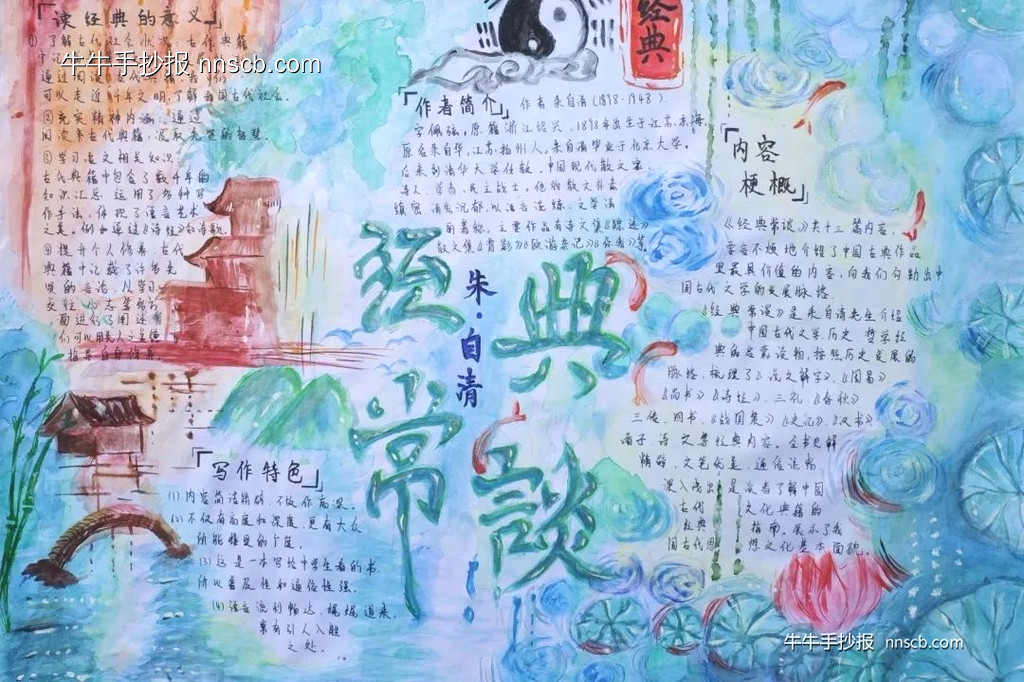 「读经典的意义」
牛牛手抄报 nnscb.com
可以走近千年文明,了解我国古代社会。
②充实精神内涵,通过
阅读古代典籍,汲取先贤的智慧。
③学习语文相关知识,
古代典籍中包含了数千年的
知识汇总,运用了多种写
作手法,体现了语言艺术
之美,例如通过《诗经》和诗歌
④提升个人修养,古代
典籍中记载了许多先
贤的言论,从学习、
经典
「作者简介」作者朱自清(1898-1948),
字佩弦,原籍浙江绍兴,1898年出生于江苏东海,
原名朱自华,江苏扬州人。朱自清毕业于北京大学,
后来到清华大学任教。中国现代散文家
诗人、学者、民主战士,他的散文朴素
缜密、清隽沉郁,以语言洗练,文笔清
丽著称。主要作品有诗文集《踪迹》
散文集《背影》《欧游杂记》《你我》等
经典常談
朱·自清
「内容
梗概」
《经典常谈》共十三篇内容,
学客不烦地介绍了中国古典作品
里最具价值的内容,向我们勾勒出中
国古代文学的发展脉络。
《经典常谈》是朱自清先生介绍
中国古代文学、历史、哲学经
典的启蒙读物,按照历史发展的
脉络,梳理了《说文解字》、《周易》
《尚书》《诗经》、三礼、《春秋》
三传、四书、《战国策》《史记》《汉书》
诸子、诗、文等经典内容。全书见解
精辟,文笔优美,通俗流畅,
深入浅出,是读者了解中国
古代 文化典籍的
经典 指南,展示了我
国古代思 想文化基本面貌。
「写作特色」
(1)内容简洁精辟,不做作高深。
(2)不仅有高度和深度,更有大众
所能接受的个度。
(3)这是一本写给中学生看的书
所以普及性和通俗性强。
(4)语言流利畅达,娓娓道来,
常有引人入胜
之处。
牛牛手抄报 nnscb.com